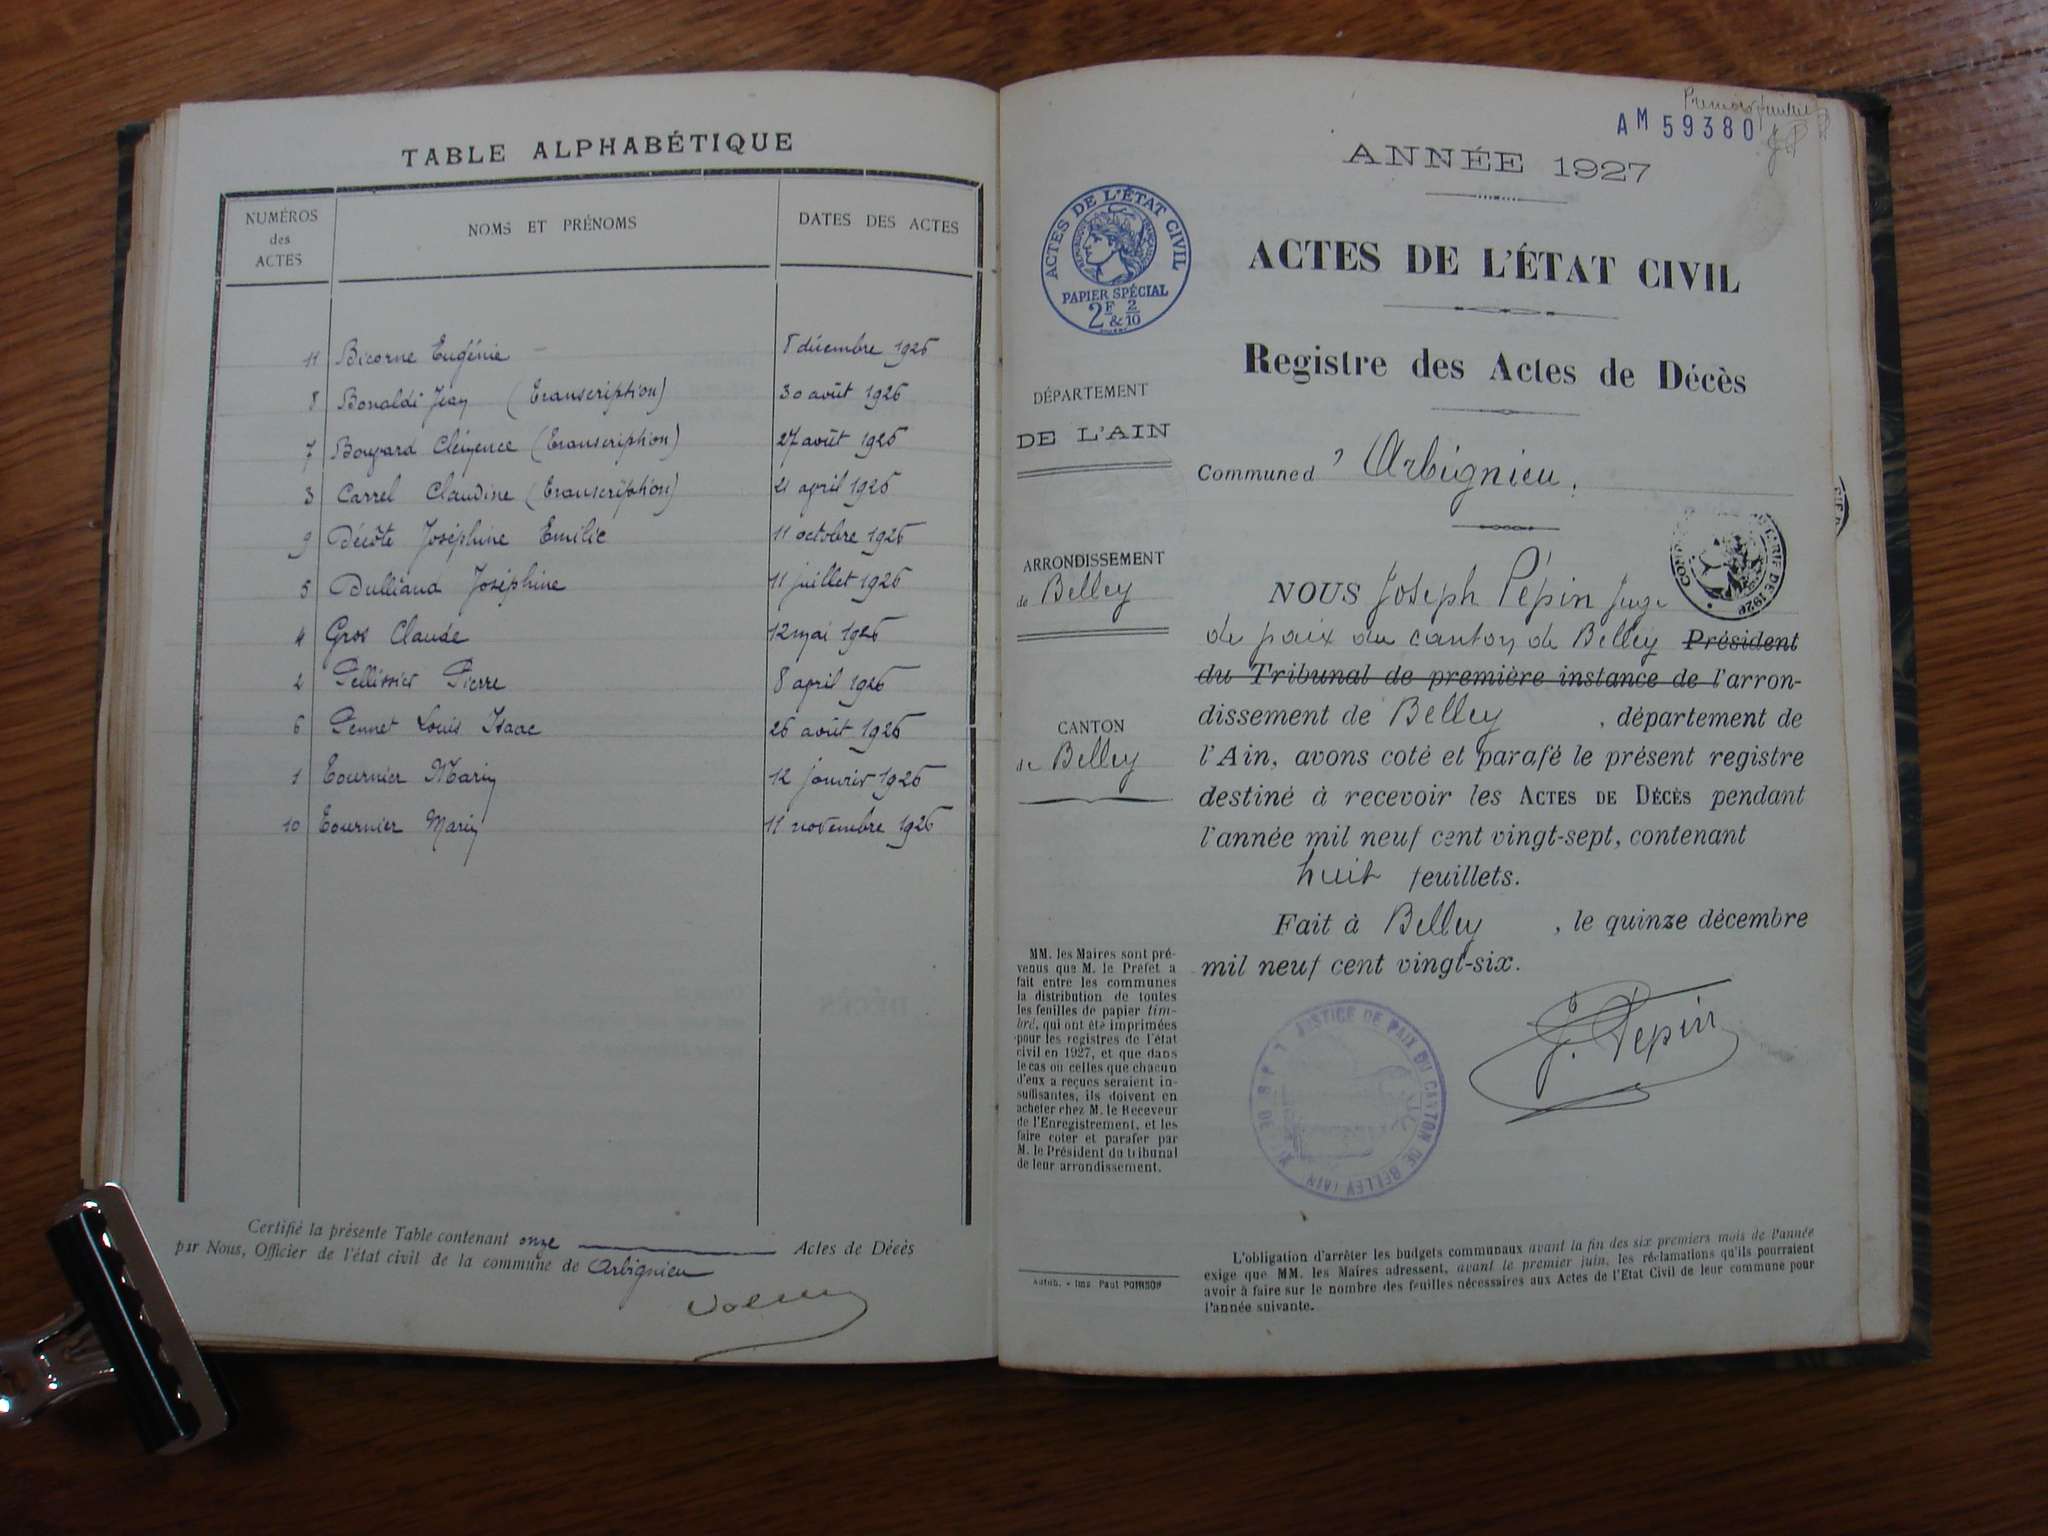 TABLE ALPHABÉTIQUE
NUMÉROS des ACTES
NOMS ET PRÉNOMS
DATES DES ACTES
11 Bicorne Eugénie 8 décembre 1926
8 Bonaldi Jean (Transcription) 30 août 1926
7 Bouvard Clémence (Transcription) 27 août 1926
3 Carrel Claudine (Transcription) 21 april 1926
9 Décôte Joséphine Emilie 11 octobre 1926
5 Dulliand Joséphine 11 juillet 1926
4 Gros Claude 12 mai 1926
2 Pellissier Pierre 8 april 1926
6 Pennet Louis Isaac 26 août 1926
1 Tournier Marie 12 janvier 1926
10 Tournier Marie 11 novembre 1926
Certifié la présente Table contenant onze Actes de Décès
par Nous, Officier de l'état civil de la commune de Arbignieu
Premier feuillet
J.P
AM 59380
ANNÉE 1927
ACTES DE L'ÉTAT CIVIL
RÉPUBLIQUE FRANÇAISE
PAPIER SPÉCIAL
2F & 2/10
ACTES DE L'ÉTAT CIVIL
Registre des Actes de Décès
DÉPARTEMENT
DE L'AIN
Commune d'Arbignieu.
ARRONDISSEMENT
de Belley
CANTON
de Belley
NOUS Joseph Pépin Juge
de paix du canton de Belley Président
du Tribunal de première instance de l'arron-
dissement de Belley, département de
l'Ain, avons coté et parafé le présent registre
destiné à recevoir les ACTES DE DÉCÈS pendant
l'année mil neuf cent vingt-sept, contenant
huit feuillets.
Fait à Belley, le quinze décembre
mil neuf cent vingt-six.
J. Pépin
JUSTICE DE PAIX DU CANTON DE BELLEY (AIN)
MM. les Maires sont pré-
venus que M. le Prefet a
fait entre les communes
la distribution de toutes
les feuilles de papier tim-
bré, qui ont été imprimées
pour les registres de l'état
civil en 1927, et que dans
le cas où celles que chacun
d'eux a reçues seraient in-
suffisantes, ils doivent en
acheter chez M. le Receveur
de l'Enregistrement, et les
faire coter et parafer par
M. le Président du tribunal
de leur arrondissement.
Ambb. - Imp. Paul POINSOT
L'obligation d'arrêter les budgets communaux avant la fin des six premiers mois de l'année
exige que MM. les Maires adressent, avant le premier juin, les réclamations qu'ils pourraient
avoir à faire sur le nombre des feuilles nécessaires aux Actes de l'Etat Civil de leur commune pour
l'année suivante.